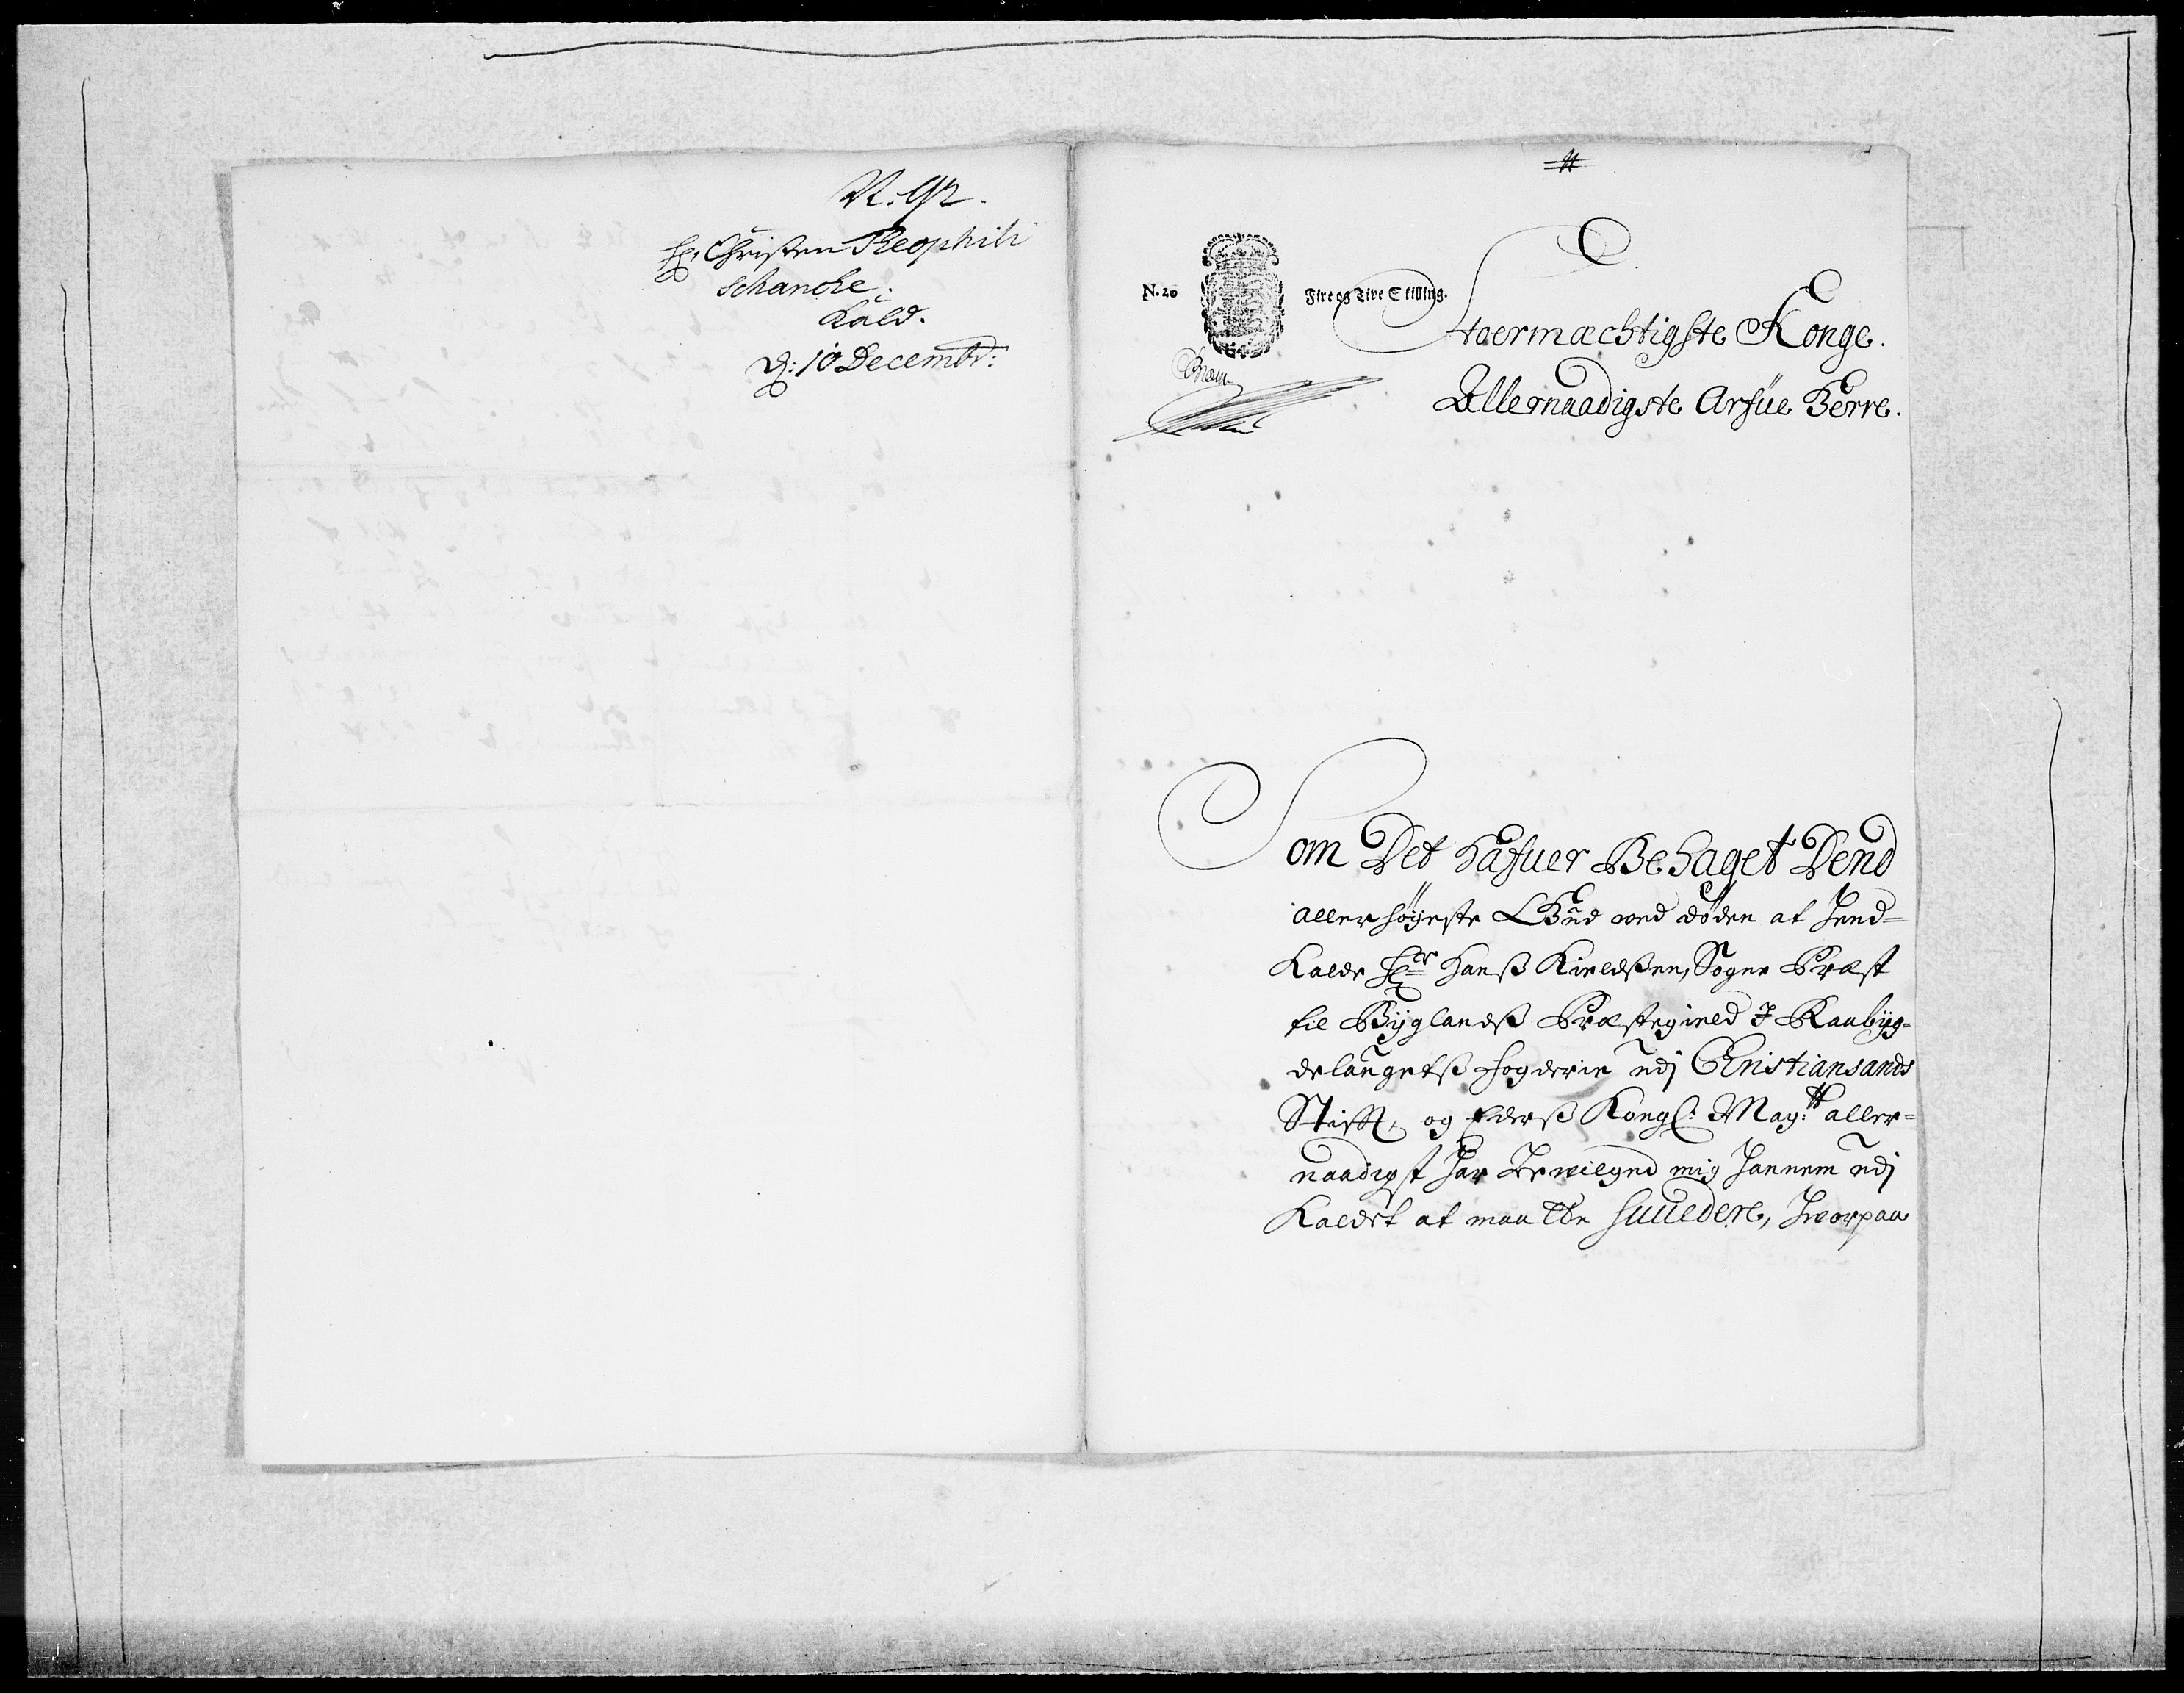 N: 92.
Hr: Christen Theophili
Schancke.
Kald.
d: 10 Decembr:
N. 20 Fire og Tive Skilling.
Stoermæchtigste Konge.
Allernaadigste Arfue Herre.
Som Det hafuer Behaget Dend
allerhøÿeste Gud ved døden at hend=
Kalde Hr Hanß Kieldßen, Sogne Præst
til Bÿglandß Præstegield I Raabÿg=
delaugetß fogderie udj Christiansands
Stifft, og Eders Kongl: May:tt aller=
naadigst har Bevilged mig hannem udj
Kaldet at maatte succedere, hvorpaa